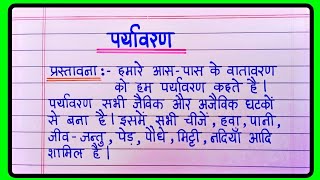 पर्यावरण
प्रस्तावना :- हमारे आस-पास के वातावरण
को हम पर्यावरण कहते है |
पर्यावरण सभी जैविक और अजैविक घटकों
से बना है | इसमें सभी चीजें, हवा, पानी,
जीव-जन्तु, पेड़, पौधे, मिट्टी, नदियाँ आदि
शामिल है |